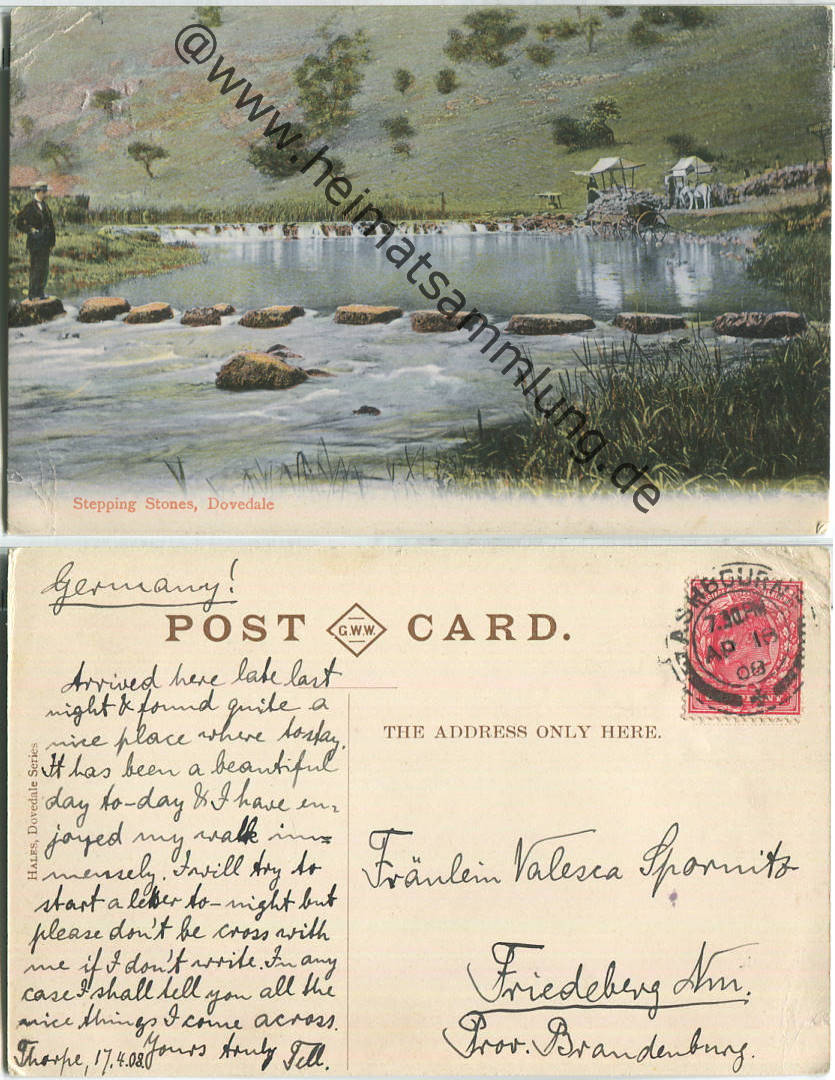 @www.heimatsammlung.de
Stepping Stones, Dovedale
Germany!
POST G.W.W. CARD.
ASHBOURNE
7.30PM
AP 18
08
Arrived here late last
night & found quite a
nice place where to stay.
It has been a beautiful
day to-day & I have en=
joyed my walk im=
mensely. I will try to
start a letter to-night but
please don't be cross with
me if I don't write. In any
case I shall tell you all the
nice things I come across.
Yours truly
Thorpe, 17.4.08. Tell.
HALES, Dovedale Series
THE ADDRESS ONLY HERE.
Fräulein Valesca Spornitz
Friedeberg Nm.
Prov. Brandenburg.